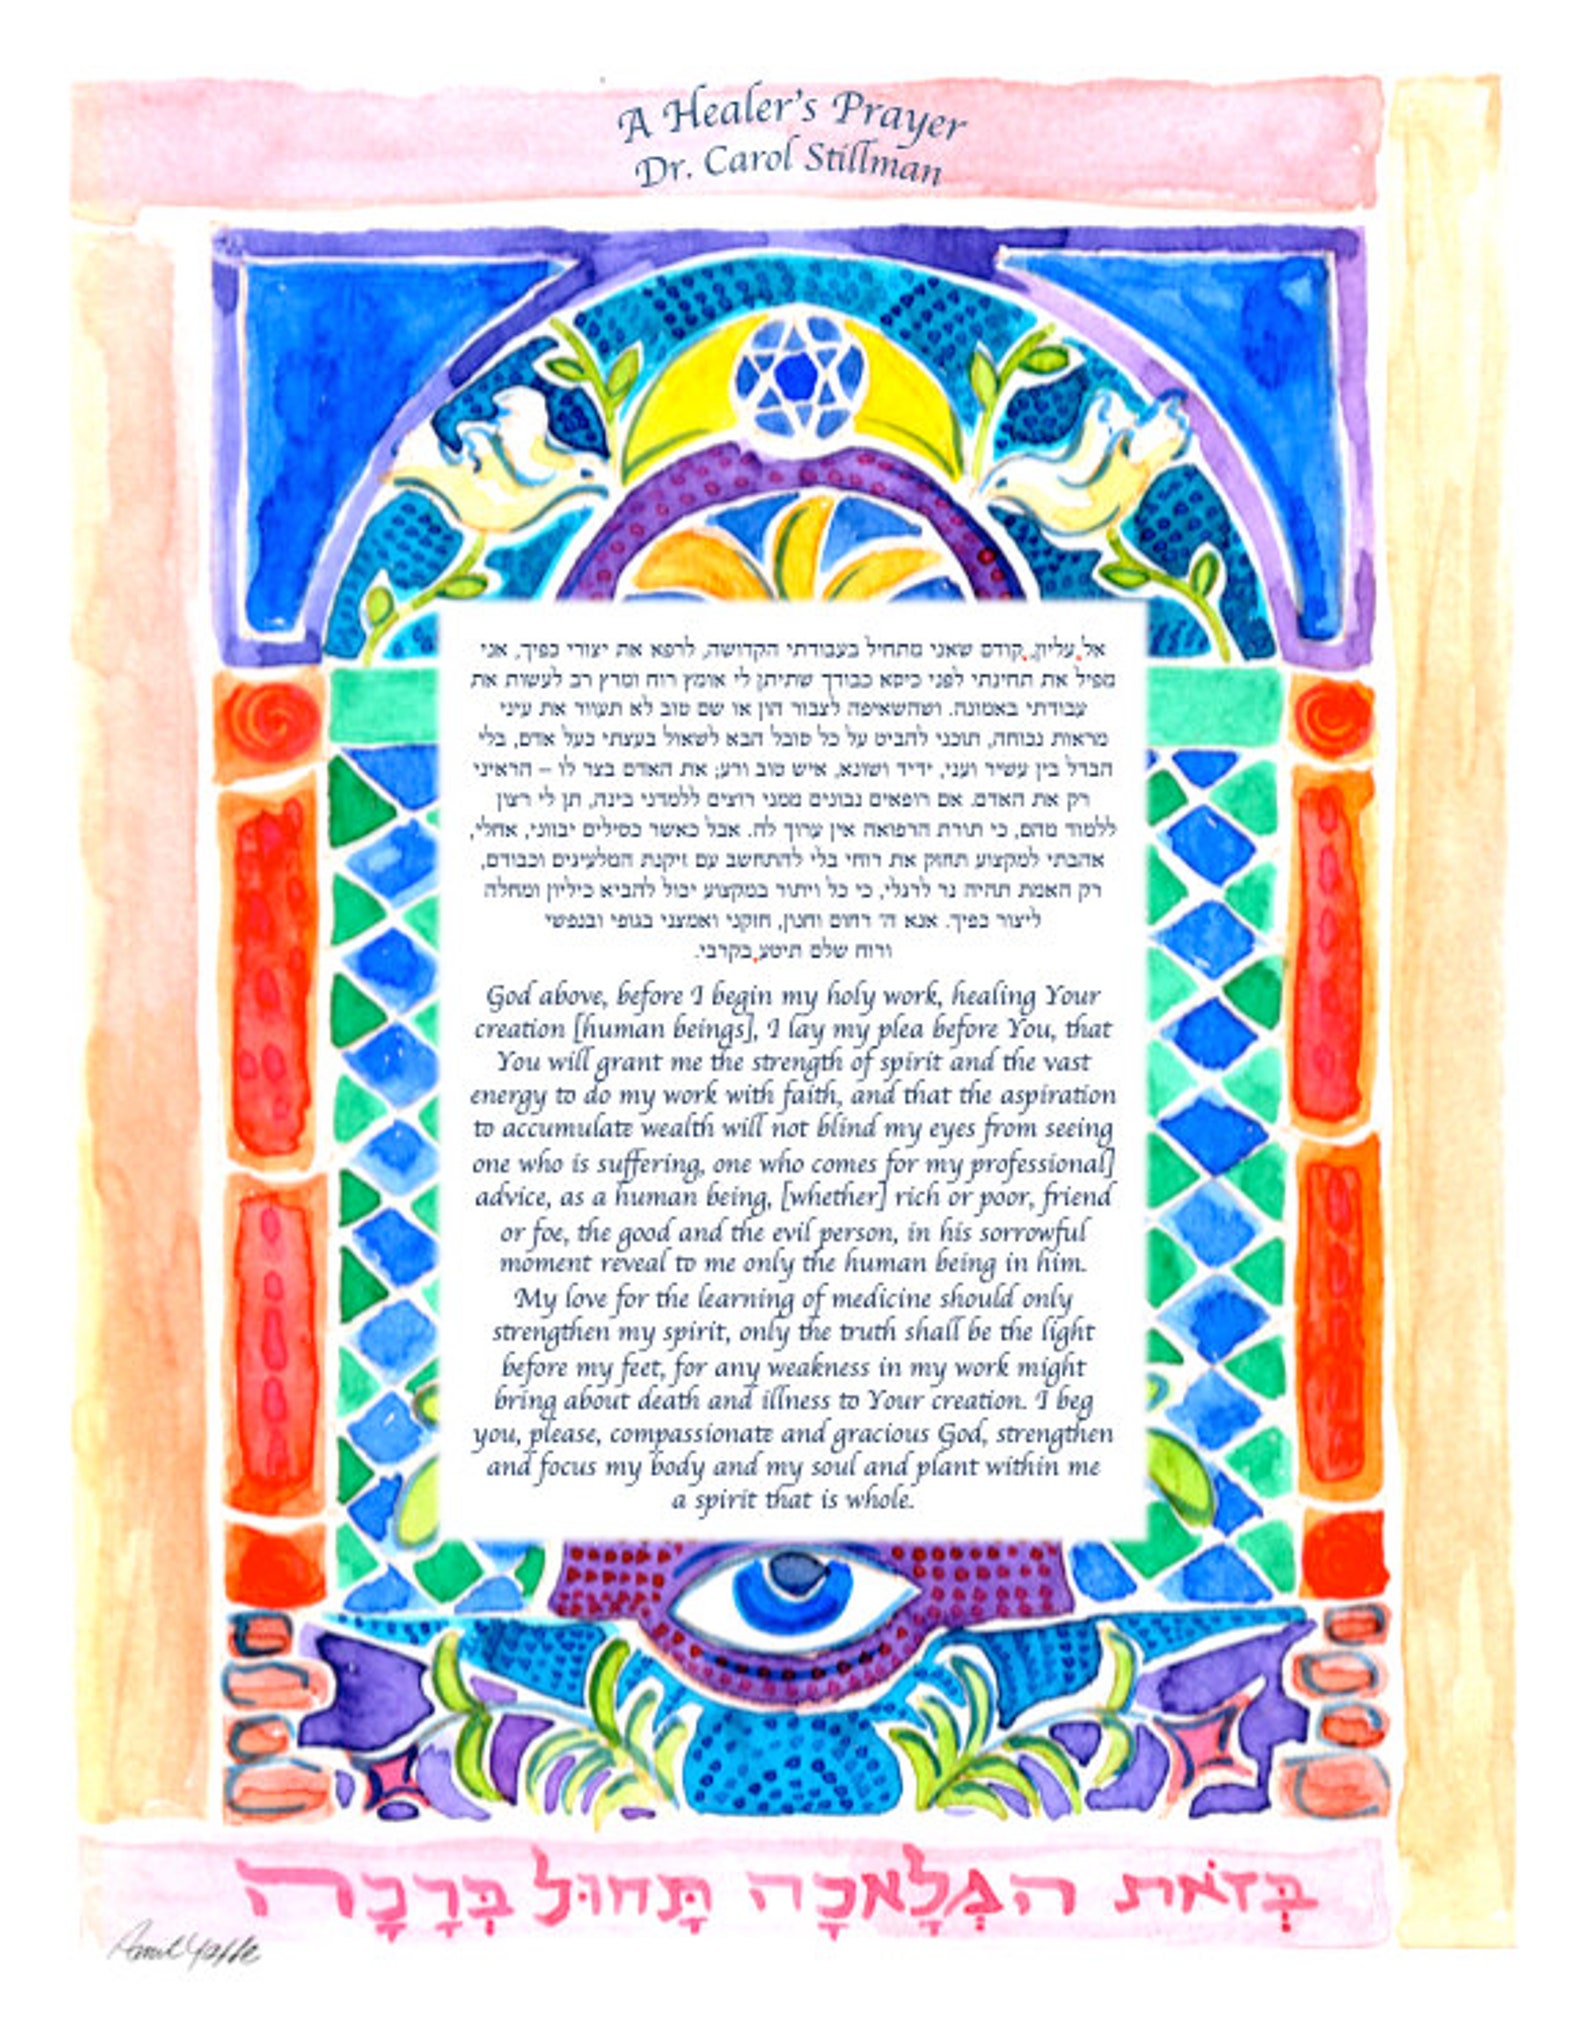 A Healer's Prayer
Dr. Carol Stillman
אל עליון, קודם שאני מתחיל בעבודתי הקדושה, לרפא את יצורי כפיך, אני
מפיל את תחינתי לפני כיסא כבודך שתיתן לי אומץ רוח ומרץ רב לעשות את
עבודתי באמונה. ושהשאיפה לצבור הון או שם טוב לא תעוור את עיני
מראות נכוחה, תוכני להביט על כל סובל הבא לשאול בעצתי כעל אדם, בלי
הבדל בין עשיר ועני, ידיד ושונא, איש טוב ורע; את האדם בצר לו – הראיני
רק את האדם. אם רופאים נבונים ממני רוצים ללמדני בינה, תן לי רצון
ללמוד מהם, כי תורת הרפואה אין ערוך לה. אבל כאשר כסילים יבזוני, אחלי,
אהבתי למקצוע תחזק את רוחי בלי להתחשב עם זיקנת המלעיגים וכבודם,
רק האמת תהיה נר לרגלי, כי כל ויתור במקצוע יכול להביא כיליון ומחלה
ליצור כפיך. אנא ה׳ רחום וחנון, חזקני ואמצני בגופי ובנפשי
ורוח שלם תיטע בקרבי.
God above, before I begin my holy work, healing Your
creation [human beings], I lay my plea before You, that
You will grant me the strength of spirit and the vast
energy to do my work with faith, and that the aspiration
to accumulate wealth will not blind my eyes from seeing
one who is suffering, one who comes for my professional]
advice, as a human being, [whether] rich or poor, friend
or foe, the good and the evil person, in his sorrowful
moment reveal to me only the human being in him.
My love for the learning of medicine should only
strengthen my spirit, only the truth shall be the light
before my feet, for any weakness in my work might
bring about death and illness to Your creation. I beg
you, please, compassionate and gracious God, strengthen
and focus my body and my soul and plant within me
a spirit that is whole.
בְּזֹאת הַמְּלָאכָה תָּחוּל בְּרָכָה
Amit Yaffe